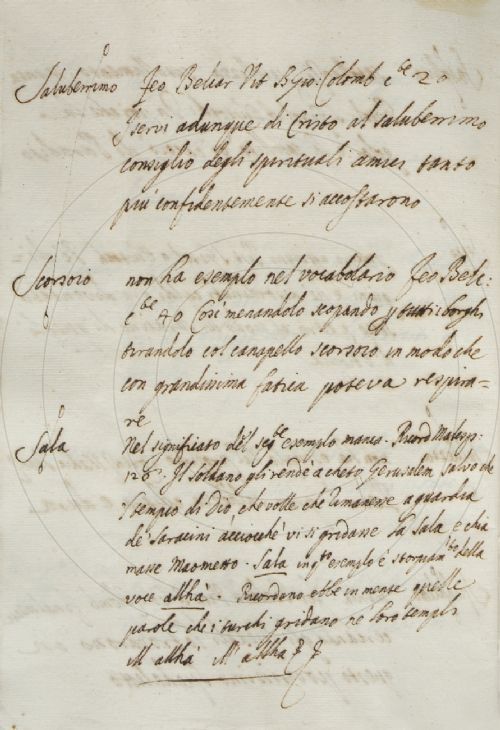 Saluberrimo Feo Belcar Vit B. Gio: Colomb c.te 20
I servi adunque di Cristo al saluberrimo
consiglio degli spirituali amici tanto
più confidentemente si accostarono
Scorsoio non ha esempio nel vocabolario Feo Belc:
c.te 40 Così menandolo scopando p tutti i borghi
tirandolo col canapello scorsoio in modo che
con grandissima fatica poteva respira-
re
Sala Nel significato del seg.te esempio manca. Ricord Malesp:
126. Il Soldano gli rendè a cheto Gerusalem salvo che
'l tempio di Dio, che volle che rimanesse a guardia
de' Saracini acciocchè vi si gridasse la Sala, e chia
masse Maometto. Sala in q.to esempio è storpiam.to della
voce allhà. Ricordano ebbe in mente quelle
parole che i turchi gridano ne' loro templi
ill' allhà ill' allhà